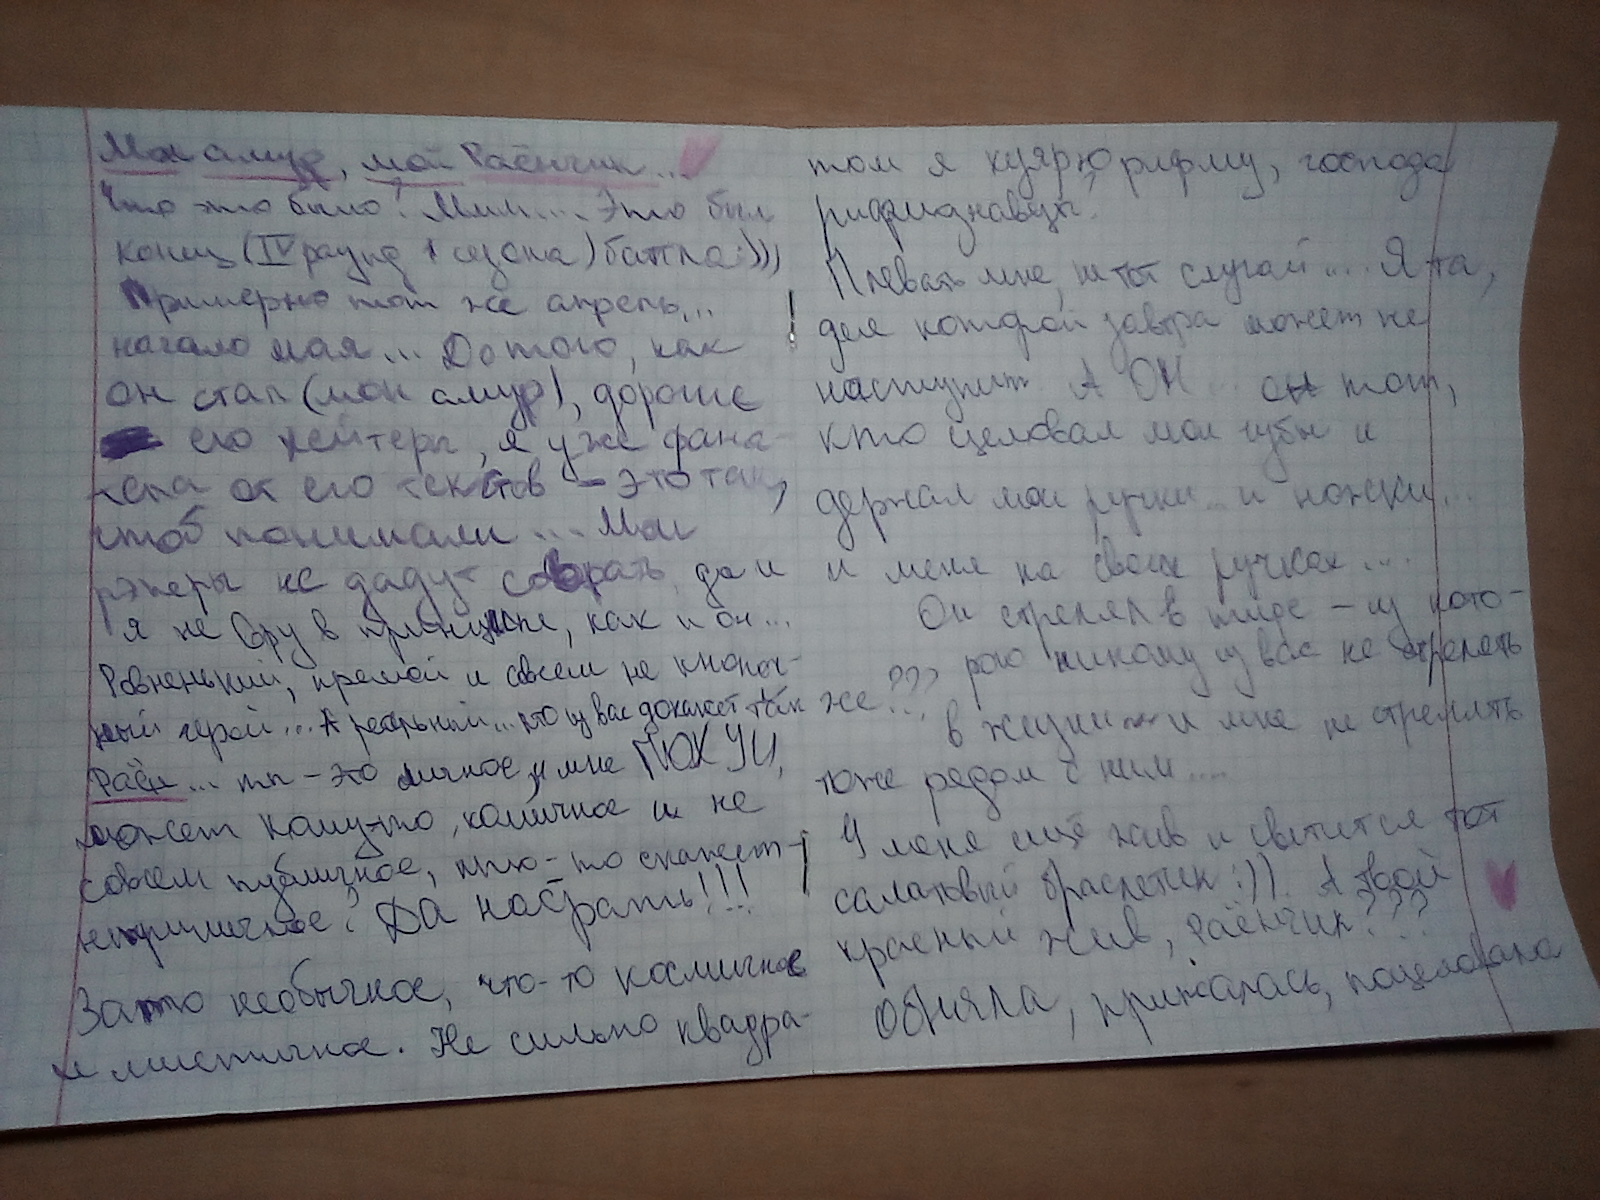 Мон амур, мой Раёнчик...
Что это было? Ммм.... Это был
конец (IV раунд 1 сезона) баттла:)))
Примерно тот же апрель,...
начало мая... До того, как
он стал (мон амур), дороше
его хейтеры, я уже фана-
тела от его текстов - это так,
чтоб понимали ... Мои
рэперы не дадут соврать, да и
я не вру в принципе, как и он...
Ровненький, прямой и совсем не кнопоч-
ный герой... А реальный... кто из вас докажет так
Раён... ты - это личное, и мне ПОХУЙ,
может кому-то, комичное и не
совсем публичное, кто-то скажет -
неприличное? Да насрать!!!
Зато необычное, что-то космичное
и мистичное. Не сильно квадра-
том я хуярю рифму, господа
рифмознавцы?
Плевать мне, не тот случай.... Я та,
! для которой завтра может не
наступит. А ОН... он тот,
кто целовал мои губы и
держал мои ручки... и ножки...
и меня на своих ручках....
Он стрелял в тире - из кото-
же??? рого никому из вас не стрелять
в жизни и мне не стрелять
тоже рядом с ним....
У меня ещё жив и светится тот
салатовый браслетик:)). А твой
красный жив, Раёнчик???
Обняла, прижалась, поцеловала